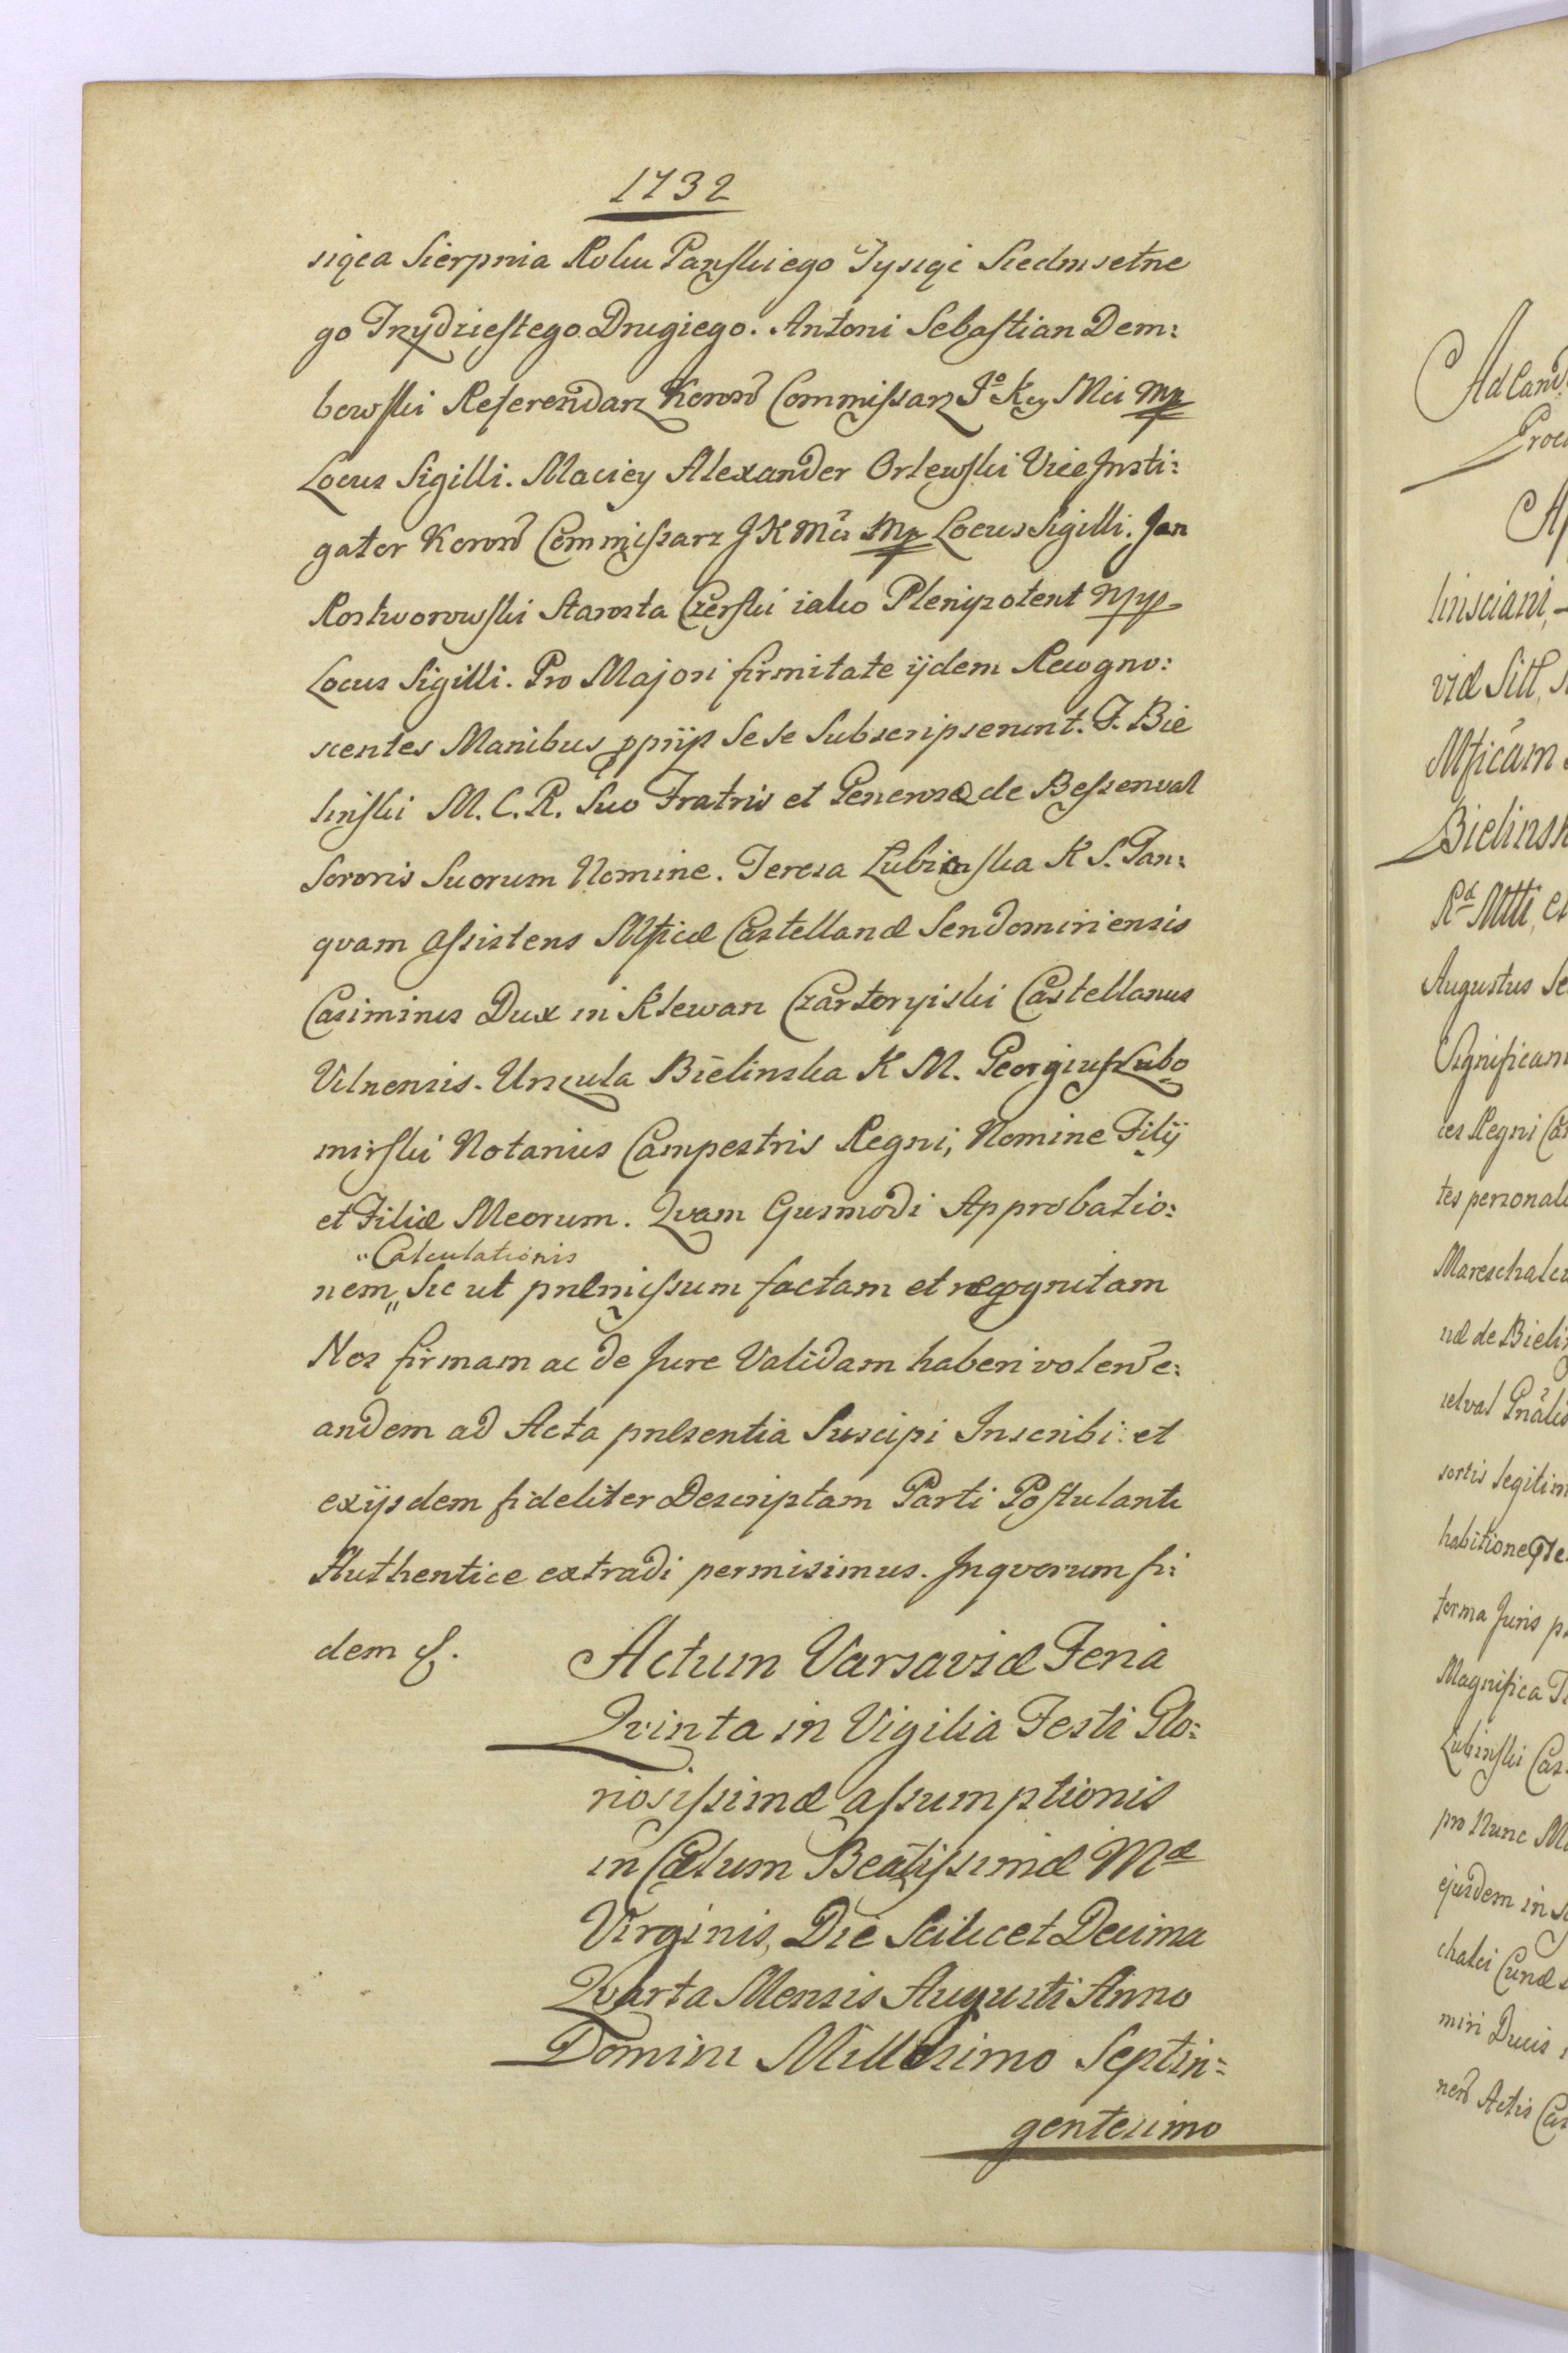 1732
siąca Sierpnia Roku Pańskiego Tysiąć Siedmsetne
go Trzydziestego Drugiego. Antoni Sebastian Dem:
bowski Referendarz Koronn Commissarz Jo Key Mci Mp
Locus Sigilli. Maciey Alexander Orlewski Vice Insti:
gator Koronn Commissarz JK Mci Mp Locus Sigilli. Jan
Roskworowski Starosta Czerski iako Plenipotent Mpp
Locus Sigilli. Pro Majori firmitate ijdem Recogno:
scentes Manibus ppriis Se Se Subscripserunt. F. Bie
linski M. C. R. Suo Fratris et Generosæ de Bessenval
Sororis Suorum Nomine. Teresa Łubienska K S. Tan:
quam assistens Mficæ Castellanæ Sendomiriensis
Casimirus Dux in Klewan Czartoryiski Castellanus
Vilnensis. Urszula Bielinska K M. Georgius Lubo
mirski Notarius Campestris Regni, Nomine Filij
et Filiæ Meorum. Qvam Gusmodi Approbatio:
"Calculationis
nem" Sic ut præmissum factam et recognitam
Nos firmam ac de Jure Validam haberi volentes
andem ad Acta præsentia Suscipi Inscribi et
exijsdem fideliter Descriptam Parti Postulanti
Authentice extradi permisimus. Inqvorum fi:
dem &.
Actum Varsaviæ Feria
Qvinta in Vigilia Festi Glo:
riosissimæ assumptionis
in Cælum Beatissimæ Mæ
Virginis, Die Scilicet Decima
Qvarta Mensis Augusti Anno
Domini Millesimo Septin:
gentesimo
Ad Cand
linsciani,
viæ Sitt,
Mficam
Bielinsk
Rd Mtti, et
Augustus Se
Significam
ces Regni Ca
tes personal
Mareschalcu
næ de Bieli
selval Gnãlis
sortis legitim
forma Juris p
Magnifica T
Lubinski Cas
pro Nunc M
ejusdem in
chalci Curiæ
miri Ducis
Actis Cas